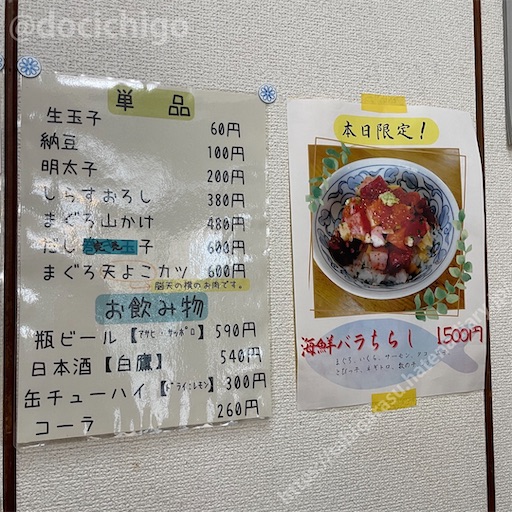 @docichigo
単品
生玉子 60円
納豆 100円
明太子 200円
しらすおろし 380円
まぐろ山かけ 480円
だし 子 600円
まぐろ天よこカツ 600円
脳天の横のお肉です。
お飲み物
瓶ビール【アサヒ・サッポロ】590円
日本酒【白鷹】 540円
缶チューハイ【ドライ レモン】300円
コーラ 260円
本日限定!
海鮮バラちらし 1500円
まぐろ、いくら、サーモン、タコ
とびっ子、ネギトロ、数の子